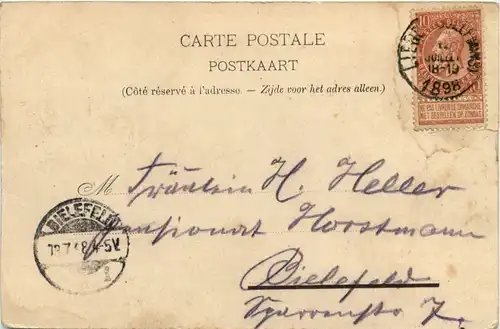 CARTE POSTALE
POSTKAART
(Côté réservé à l'adresse. – Zijde voor het adres alleen.)
10
JUILLET
18-19
1898
NE PAS LIVRER LE DIMANCHE
NIET BESTELLEN OP ZONDAG
M Fräulein H. Heller
Pensionat Horstmann
BIELEFELD
Bielefeld
Sparrenstr 7.